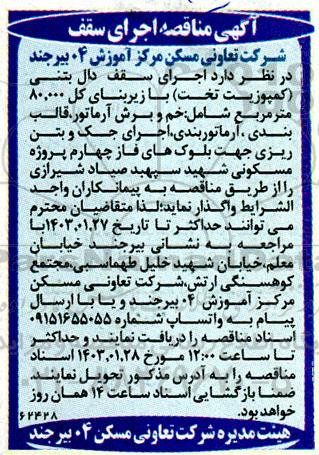 آگهی مناقصه اجرای سقف
شرکت تعاونی مسکن مرکز آموزش ۰۴ بیرجند
در نظر دارد اجرای سقف دال بتنی
(کمپوزیت تخت) با زیربنای کل ۸۰،۰۰۰
مترمربع شامل:خم و برش آرماتور،قالب
بندی ،آرماتوربندی،اجرای جک و بتن
ریزی جهت بلوک های فاز چهارم پروژه
مسکونی شهید سپهبد صیاد شیرازی
را از طریق مناقصه به پیمانکاران واجد
الشرایط واگذار نماید؛لذا متقاضیان محترم
می توانند حداکثر تا تاریخ ۱۴۰۳،۰۱،۲۷با
مراجعه به نشانی بیرجند خیابان
معلم،خیابان شهید خلیل طهماسبی،مجتمع
کوهسنگی ارتش،شرکت تعاونی مسکن
مرکز آموزش ۰۴ بیرجند و یا با ارسال
پیام به واتساپ شماره ۰۹۱۵۱۶۵۵۰۵۵
اسناد مناقصه را دریافت نمایند و حداکثر
تا ساعت ۱۲:۰۰ مورخ ۱۴۰۳،۰۱،۲۸ اسناد
مناقصه را به آدرس مذکور تحویل نمایند
ضمنا بازگشایی اسناد ساعت ۱۴ همان روز
خواهد بود.
۶۲۴۲۸
هیئت مدیره شرکت تعاونی مسکن ۰۴ بیرجند